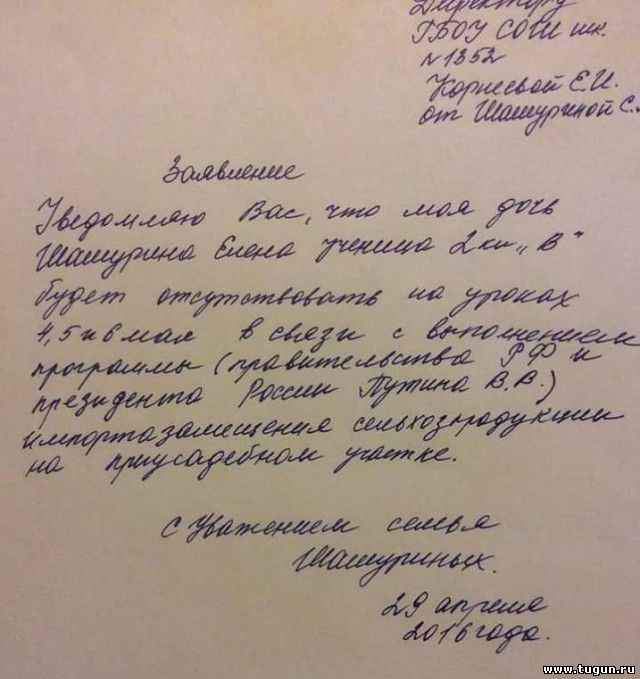 Директору
ГБОУ СОШ шк.
№1352
Корневой Е.И.
от Шашуриной С.
Заявление
Уведомляю Вас, что моя дочь
Шашурина Елена ученица 2 кл „В"
будет отсутствовать на уроках
4,5 и 6 мая в связи с выполнением
программы (правительства РФ и
президента России Путина В.В.)
импортазамещения сельхозпродукции
на приусадебном участке.
С Уважением семья
Шашуриных.
29 апреля
2016 года.
www.tugun.ru